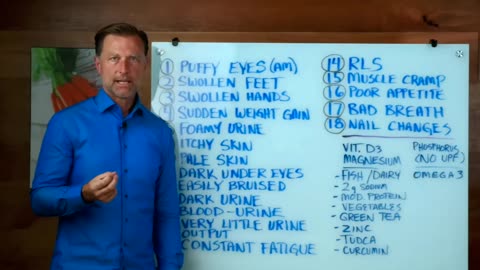 1 PUFFY EYES (AM)
2 SWOLLEN FEET
3 SWOLLEN HANDS
4 SUDDEN WEIGHT GAIN
FOAMY URINE
ITCHY SKIN
PALE SKIN
DARK UNDER EYES
EASILY BRUISED
DARK URINE
BLOOD-URINE
VERY LITTLE URINE
OUTPUT
CONSTANT FATIGUE
14 RLS
15 MUSCLE CRAMP
16 POOR APPETITE
17 BAD BREATH
18 NAIL CHANGES
VIT. D3
MAGNESIUM
- FISH/DAIRY
- 2g SODIUM
- MOD. PROTEIN
- VEGETABLES
- GREEN TEA
- ZINC
- TUDCA
- CURCUMIN
PHOSPHORUS
(NO UPF)
OMEGA 3